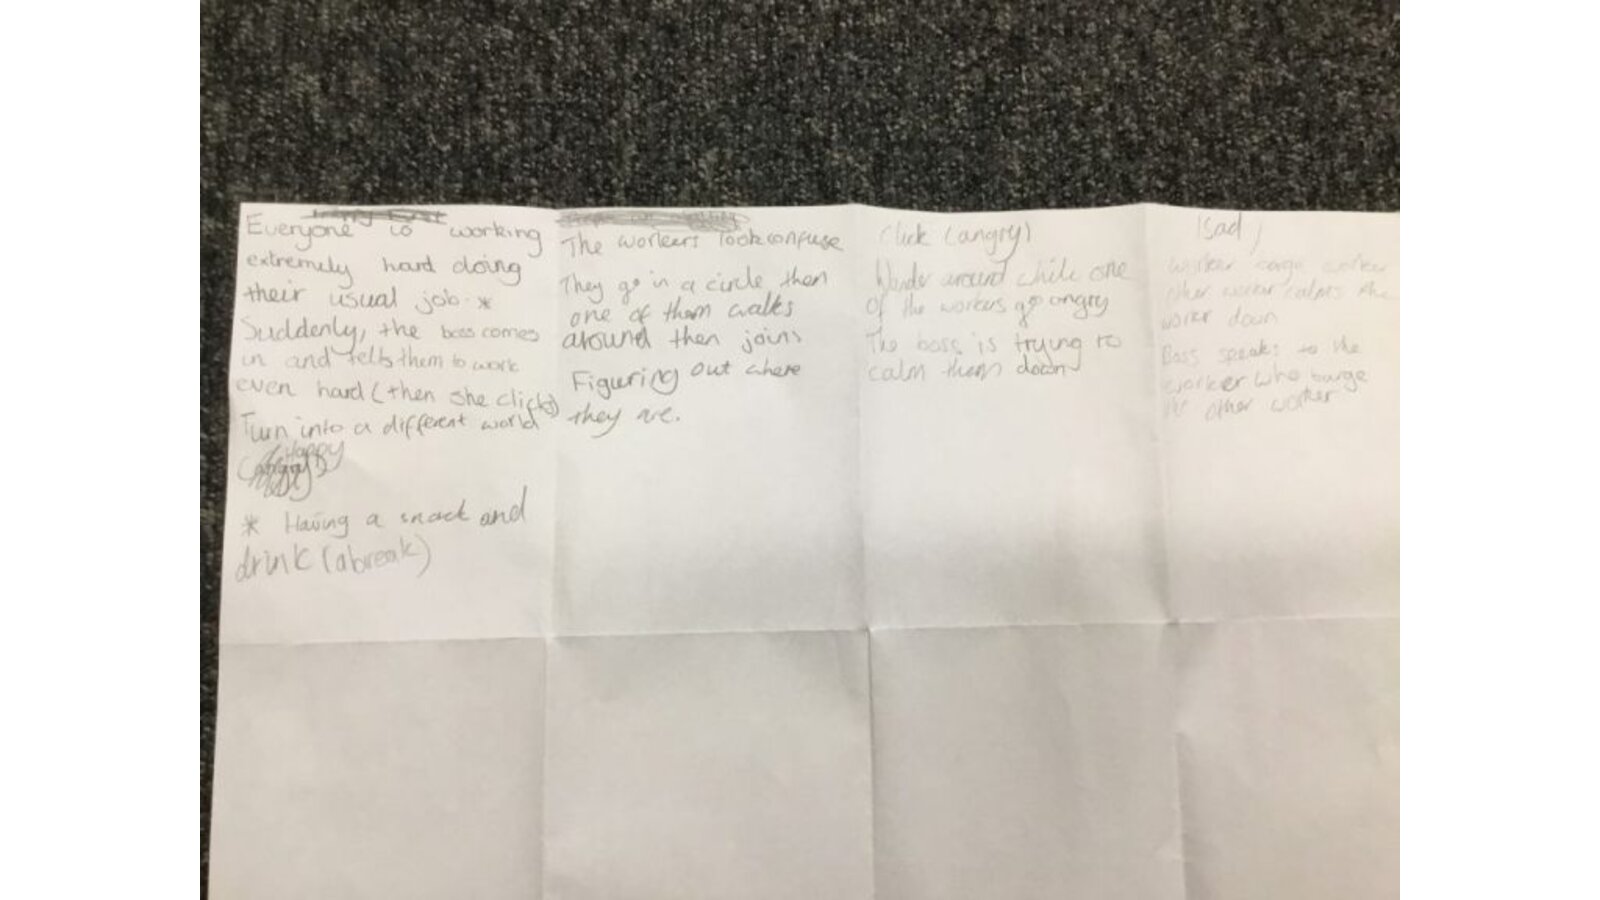 Everyone is working
extremely hard doing
their usual job. *
Suddenly, the boss comes
in and tells them to work
even hard (then she clicks)
Turn into a different world
Happy
* Having a snack and
drink (a break)
The workers look confuse
They go in a circle then
one of them walks
around then joins
Figuring out where
they are.
Click (angry)
Wander around while one
of the workers go angry
The boss is trying to
calm them down
(sad)
worker barge worker
other worker calms the
worker down
Boss speaks to the
worker who barge
the other worker